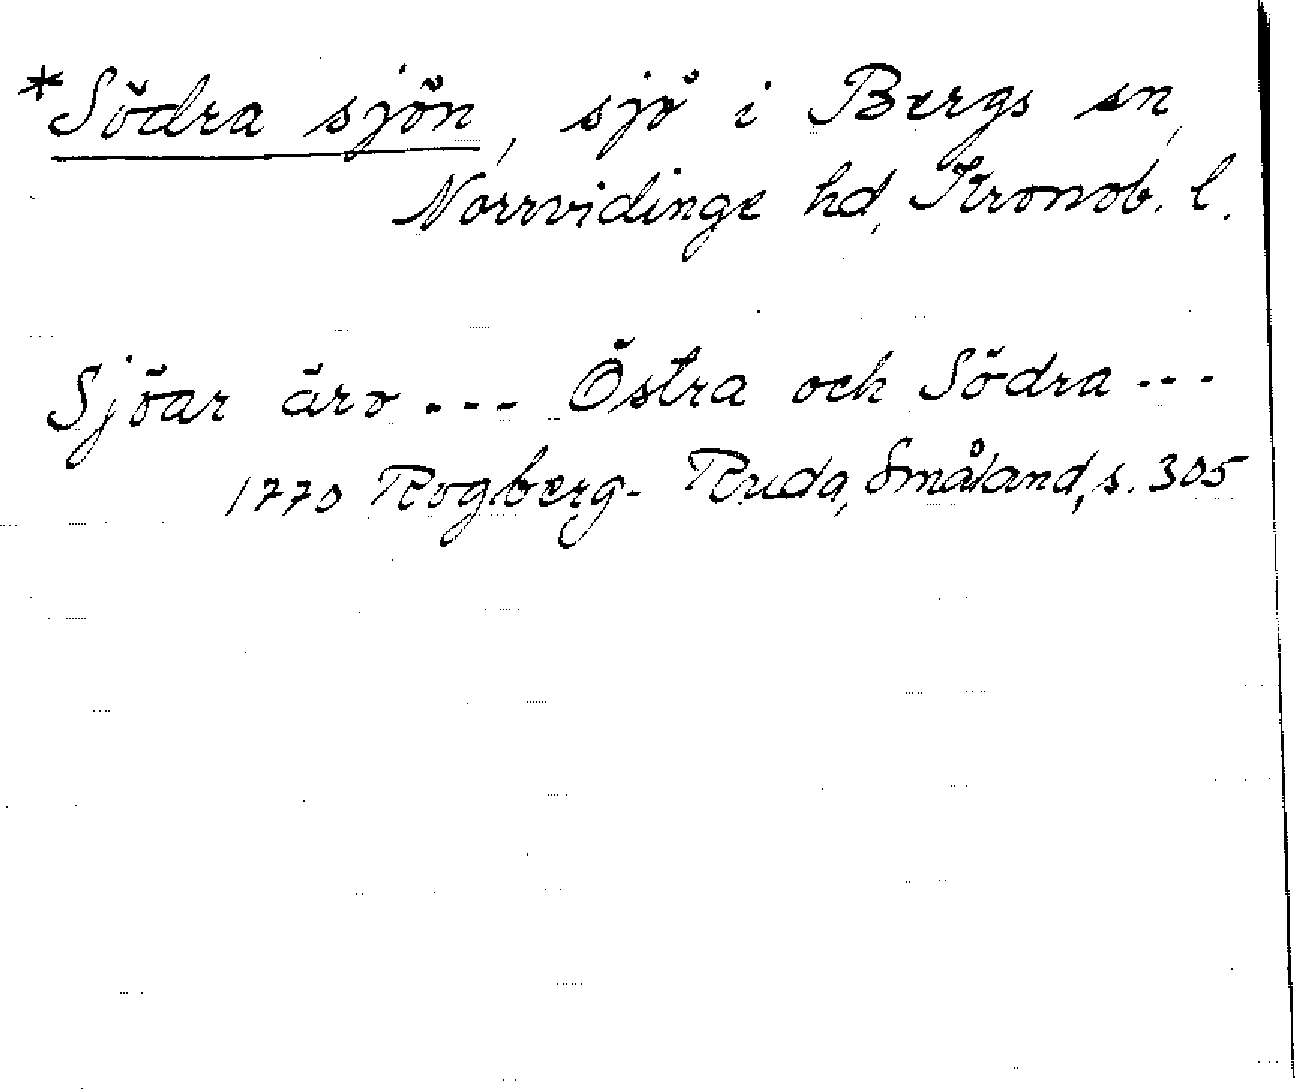 *Södra sjön, sjö i Bergs sn,
Norrvidinge hd, Kronob. l.
Sjöar äro --- Östra och Södra ---
1770 Rogberg- Ruda, Småland, s. 305